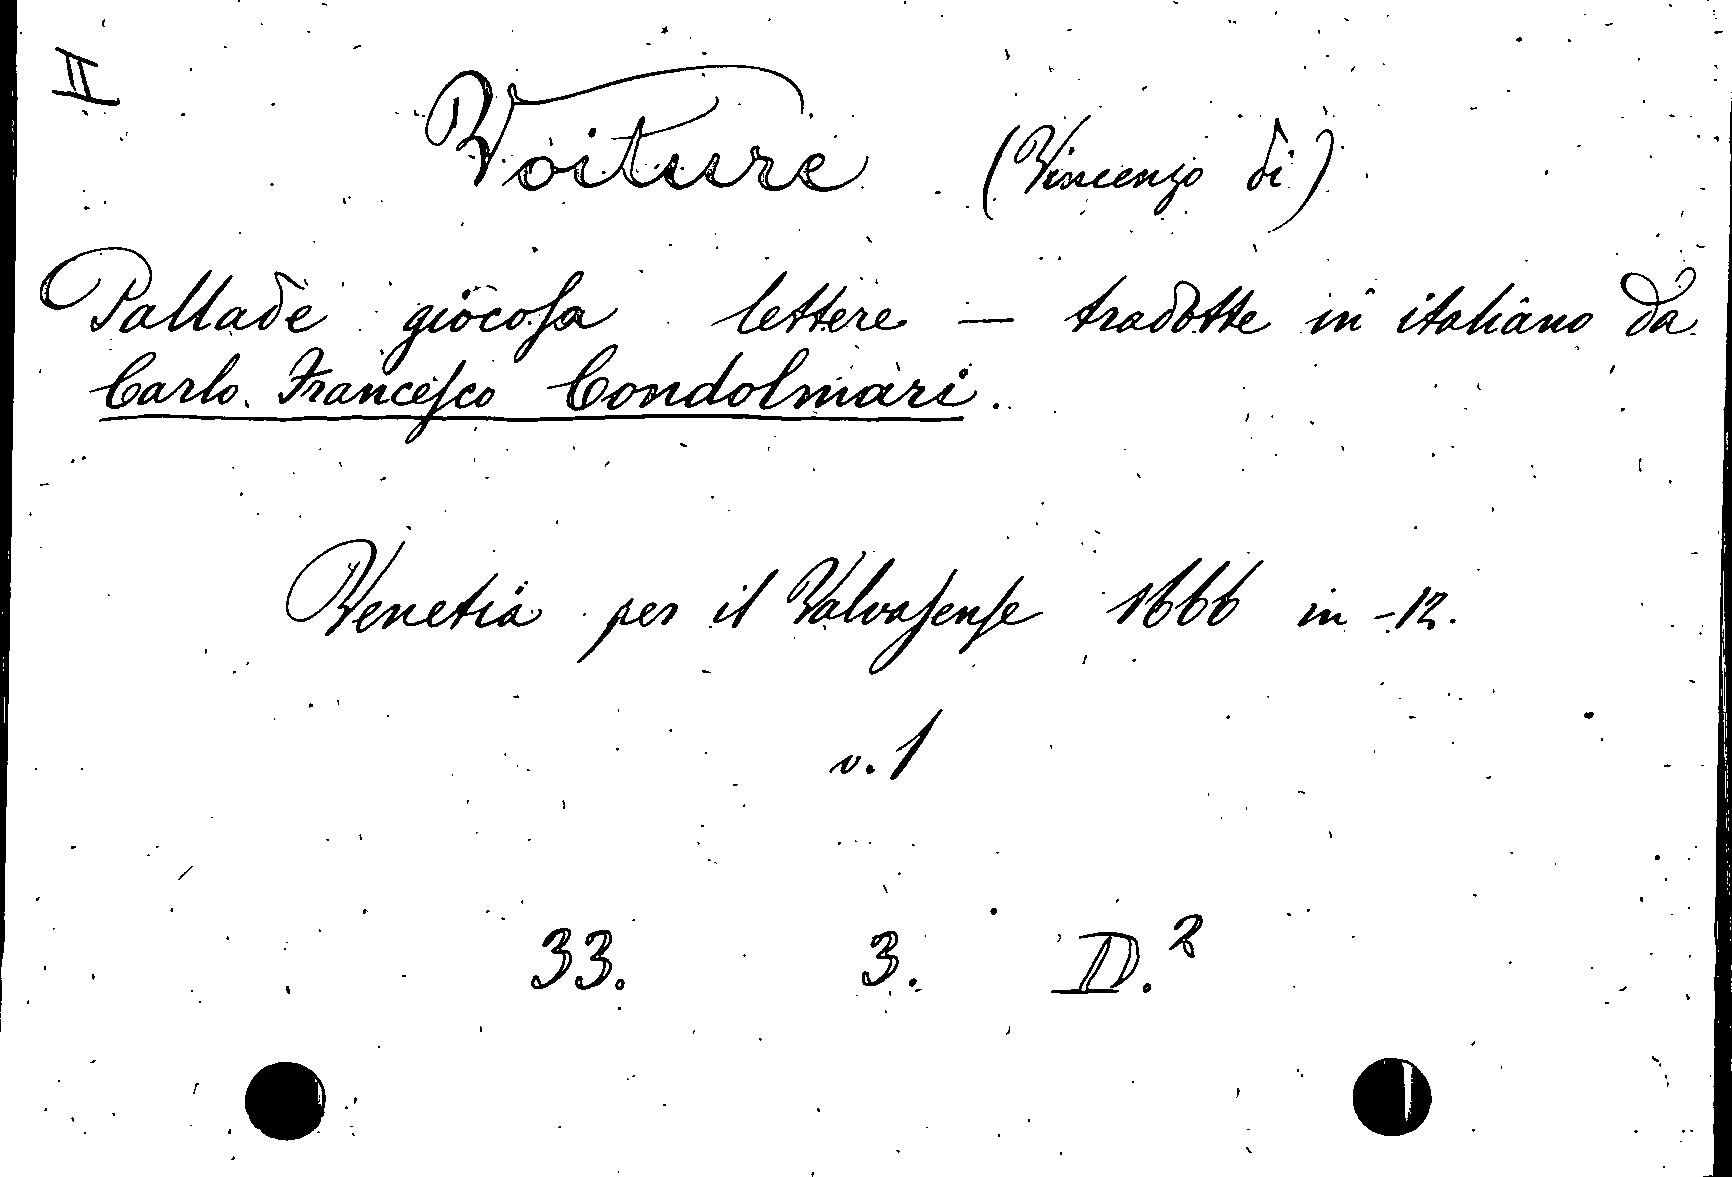 II
Voiture (Vincenzo di)
Pallade giocosa lettere — tradotte in italiano da
Carlo Francesco Condolmari.
Venetia per il Valvasense 1666 in -12.
v. 1
33. 3. D.²